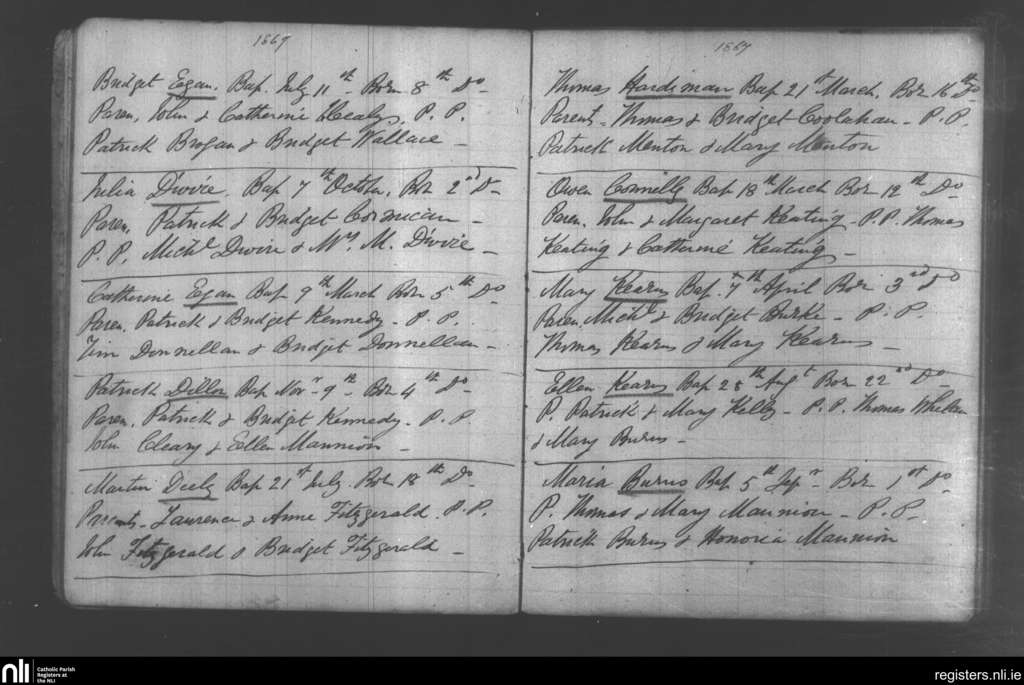 1869
Bridget Egan. Bap. July 11th Born 8th Do
Paren, John & Catherine Healy. P. P.
Patrick Brogan & Bridget Wallace
Julia Dwire Bap 7th October, Bor 2nd Do
Paren, Patrick & Bridget Cormican
P. P. Michl Dwire & Mrs M. Dwire
Catherine Egan Bap 9th March Born 5th Do
Paren, Patrick & Bridget Kennedy. P. P.
Tim Donnellan & Bridget Donnellan
Patrick Dillon Bap Novr 9th Bor 4th Do
Paren, Patrick & Bridget Kennedy. P. P
John Cleary & Ellen Mannion
Martin Deely Bap 21st July. Bor 18th Do
Parents. Laurence & Anne Fitzgerald. P. P.
John Fitzgerald & Bridget Fitzgerald
1869
Thomas Hardiman Bap 21st March. Bor 16th Do
Parents. Thomas & Bridget Coolahan. P. P.
Patrick Menton & Mary Menton
Owen Connelly Bap 18th March Bor 12th Do
Paren, John & Margaret Keating. P. P. Thomas
Keating & Catherine Keating
Mary Kearns Bap 7th April Bor 3rd Do
Paren, Michl & Bridget Burke. P. P.
Thomas Kearns & Mary Kearns
Ellen Kearns Bap 25th Augt Bor 22nd Do
P. Patrick & Mary Kelly. P. P. Thomas Whelan
& Mary Burns
Maria Burns Bap 5th Sepr Bor 1st Do
P. Thomas & Mary Mannion. P. P.
Patrick Burns & Honoria Mannion
nli
Catholic Parish
Registers at
the NLI
registers.nli.ie